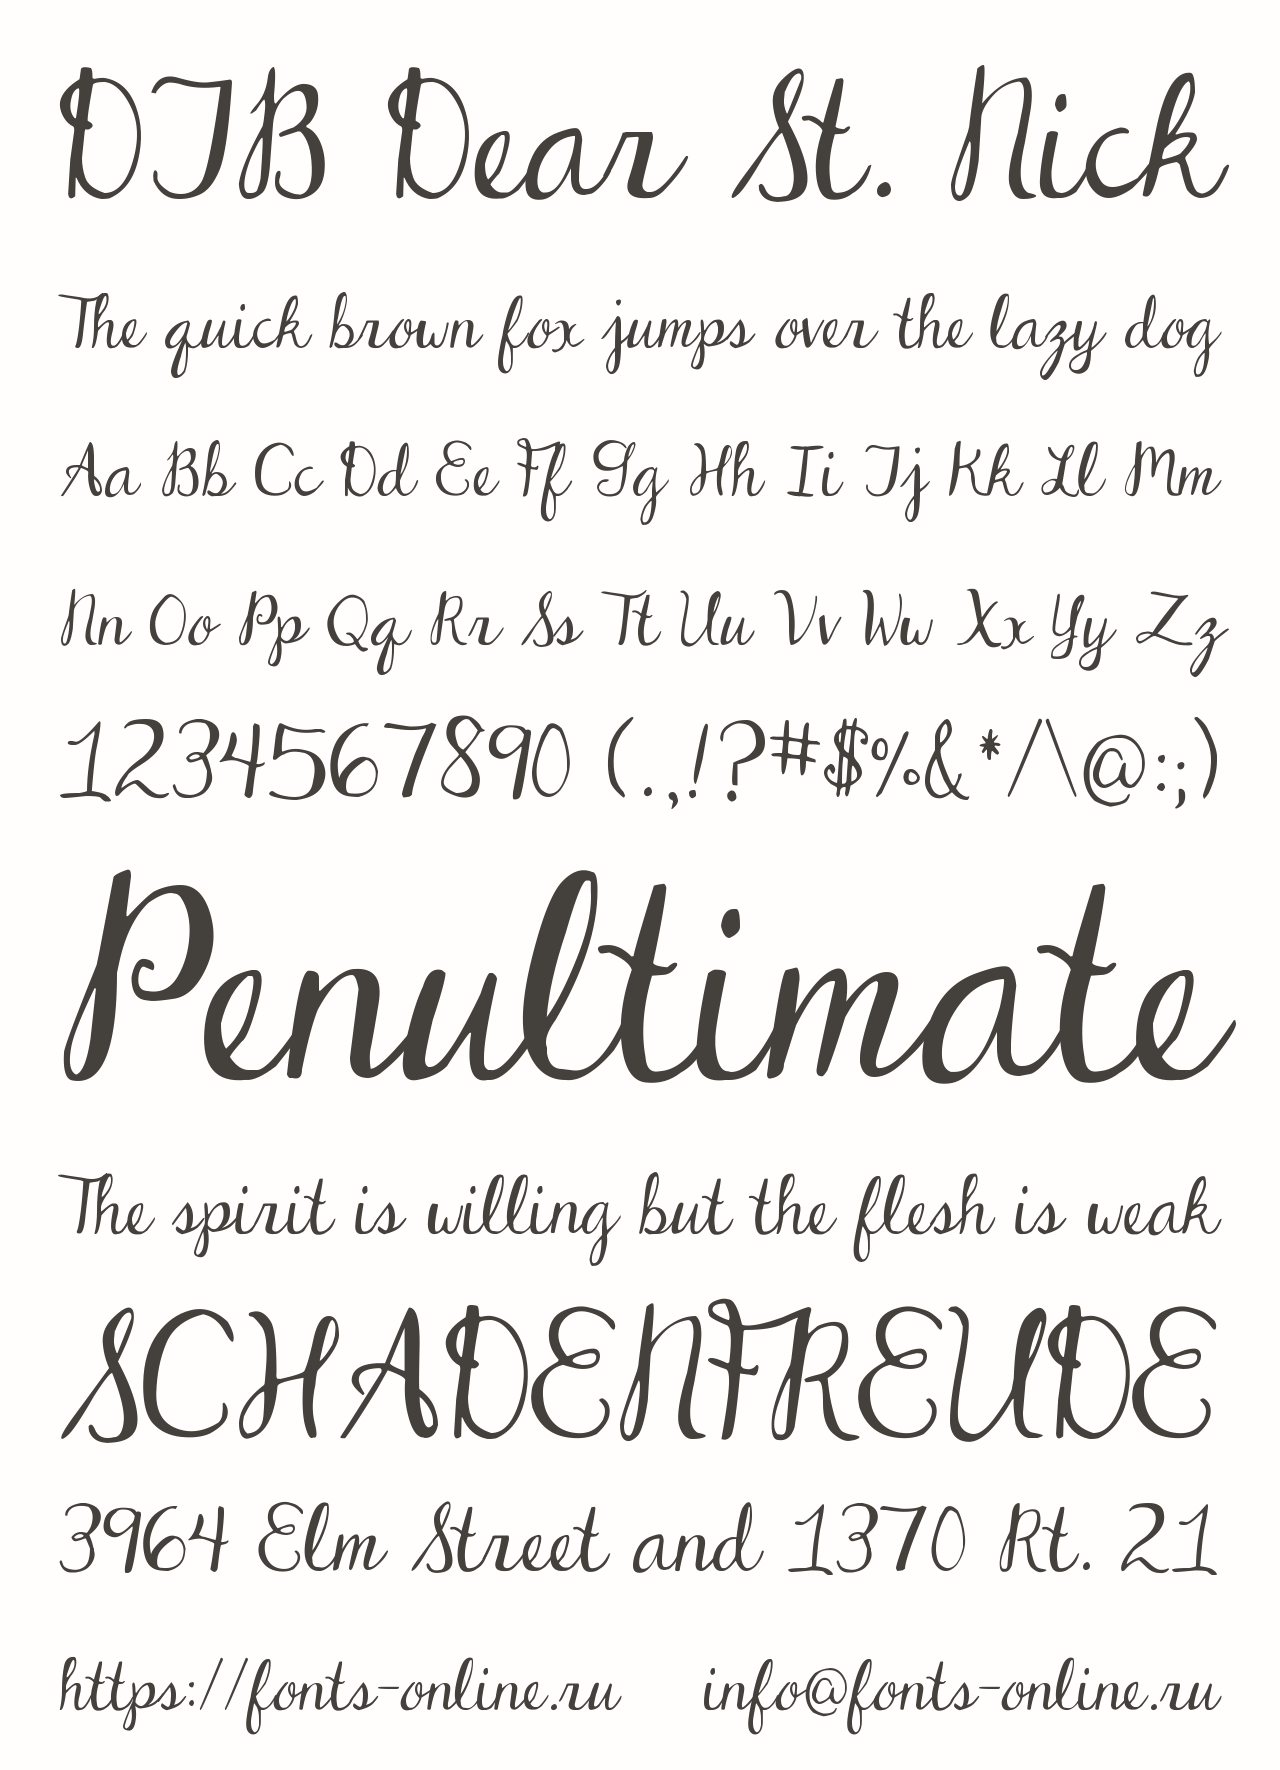 DTB Dear St. Nick
The quick brown fox jumps over the lazy dog
Aa Bb Cc Dd Ee Ff Gg Hh Ii Jj Kk Ll Mm
Nn Oo Pp Qq Rr Ss Tt Uu Vv Ww Xx Yy Zz
1234567890 (.,!?#$%&*/\@:;)
Penultimate
The spirit is willing but the flesh is weak
SCHADENFREUDE
3964 Elm Street and 1370 Rt. 21
https://fonts-online.ru info@fonts-online.ru